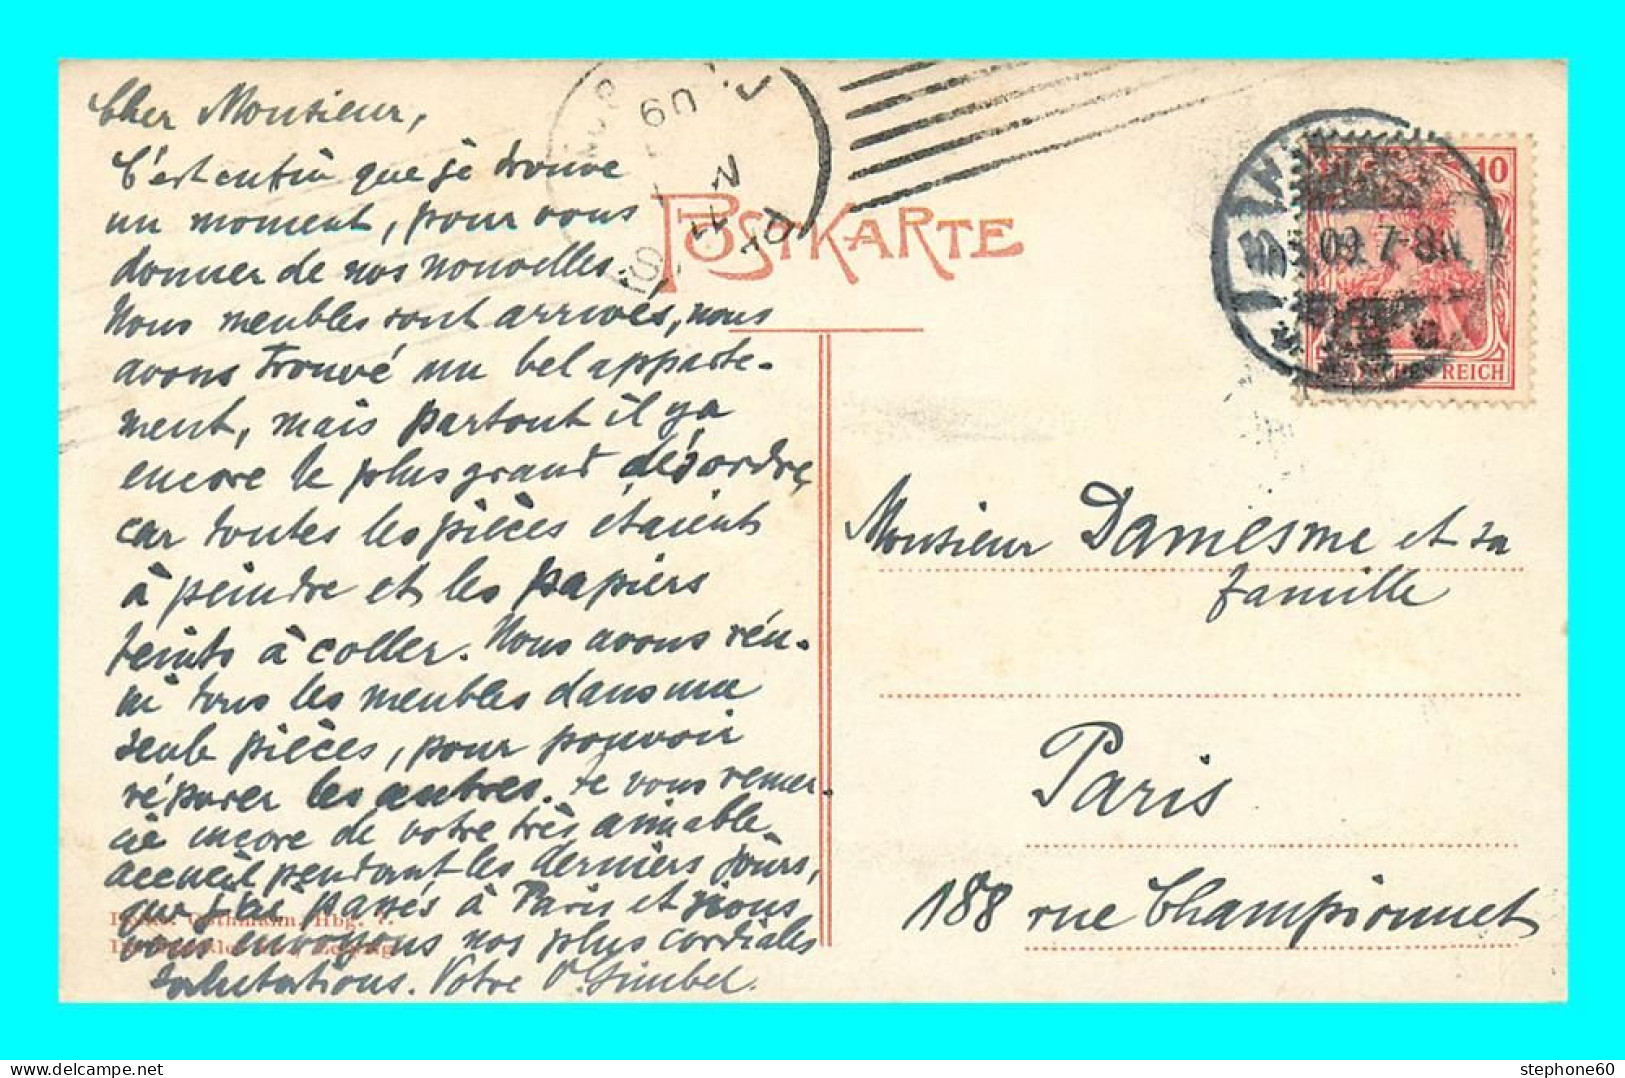 Cher Monsieur,
C'est enfin que je trouve
un moment, pour vous
donner de nos nouvelles.
Nous meubles sont arrivés, nous
avons trouvé un bel apparte-
ment, mais partout il y a
encore le plus grand désordre,
car toutes les pièces étaient
à peindre et les papiers
teints à coller. Nous avons réu-
ni tous les meubles dans une
seule pièces, pour pouvoir
réparer les autres. Je vous remer-
cie encore de votre très aimable
accueil pendant les derniers jours,
que j'ai passés à Paris et nous
vous envoyons nos plus cordiales
salutations. Votre
POSTKARTE
09. 7-8N.
10
DEUTSCHES REICH
Monsieur Damesme et sa
famille
Paris
188 rue Championnet
stephone60